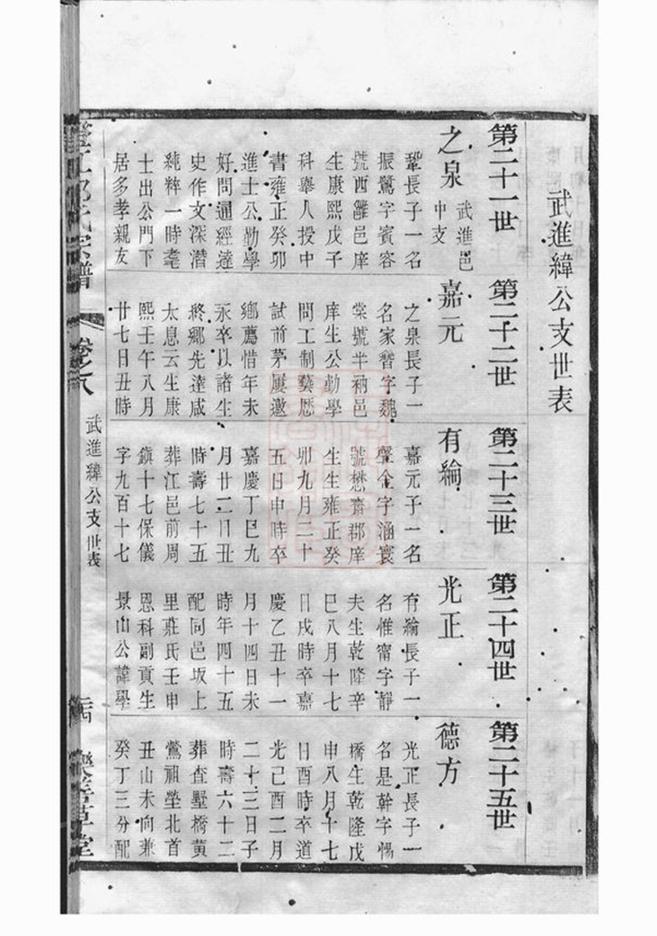 武進緯公支世表
第二十一世
之泉
武進邑
中支
鞏長子一名
振鷺字賓容
號西雝邑庠
生康熙戊子
科舉人授中
書雍正癸卯
進士公勤學
好問通經達
史作文深潛
純粹一時耄
士出公門下
居多孝親友
第二十二世
嘉元
之泉長子一
名家朁字魏
棠號半衲邑
庠生公勤學
問工制藝歷
試前茅屢邀
鄉薦惜年未
永卒以諸生
終鄉先達咸
太息云生康
熙壬午八月
廿七日丑時
第二十三世
有綸
嘉元子一名
聲金字涵寰
號懋齋郡庠
生生雍正癸
卯九月二十
五日申時卒
嘉慶丁巳九
月廿二日丑
時壽七十五
葬江邑前周
鎮十七保儀
字九百十七
第二十四世
光正
有綸長子一
名惟甯字靜
夫生乾隆辛
巳八月十七
日戌時卒嘉
慶乙丑十一
月十四日未
時年四十五
配同邑坂上
里莊氏壬申
恩科副貢生
景山公諱學
第二十五世
德方
光正長子一
名是幹字惕
橋生乾隆戊
申八月十七
日酉時卒道
光己酉二月
二十三日子
時壽六十二
葬查墅橋黃
鶯祖塋北首
丑山未向兼
癸丁三分配
氏宗譜
卷之八
武進緯公支世表
樂善草堂